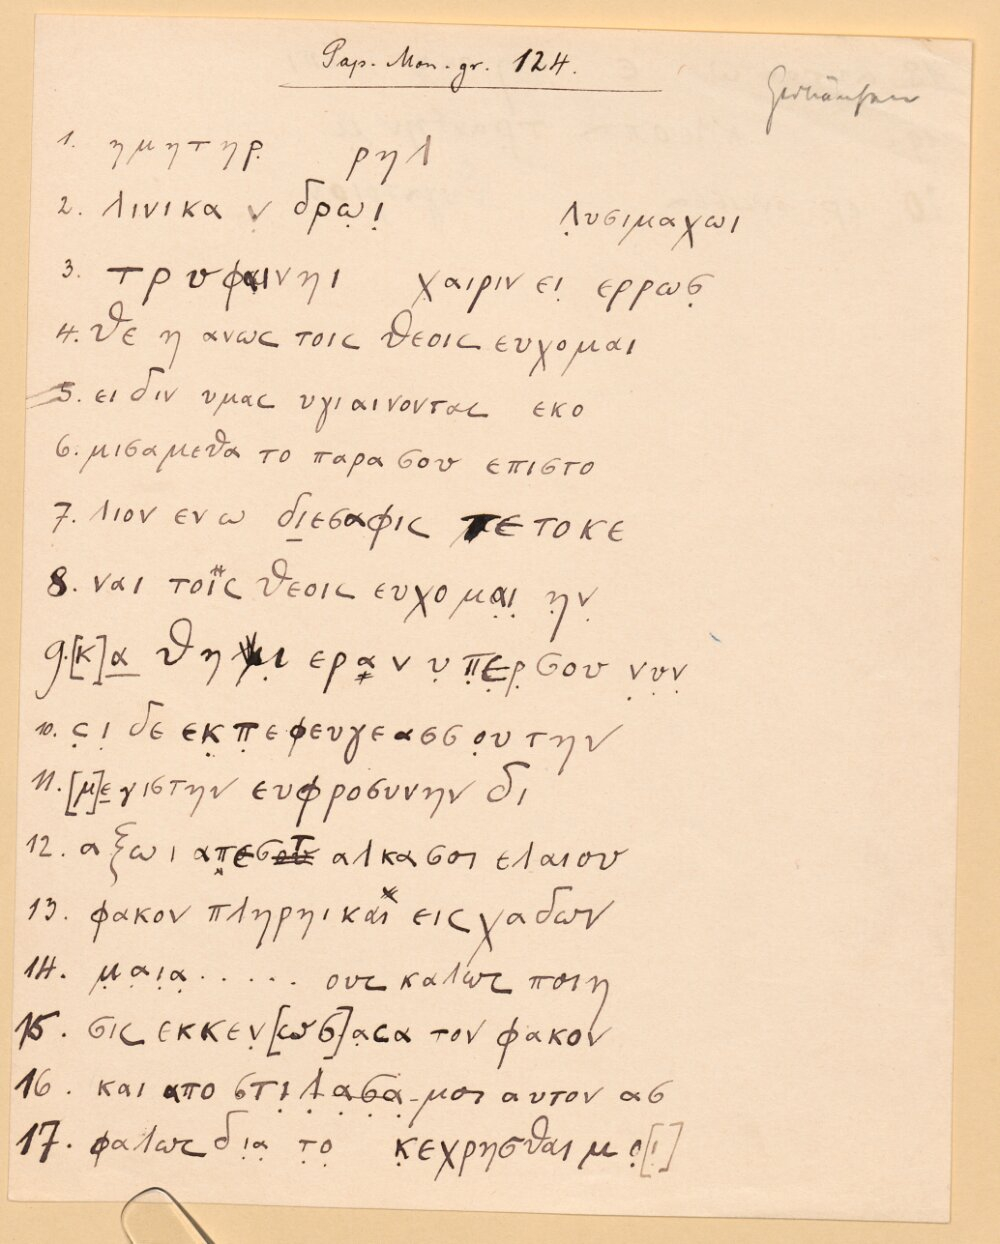 Pap. Mon. gr. 124.
1. ημητηρ ρηλ
2. λινικα ν δρωι Λυσιμαχωι
3. τρυφαινηι χαιριν ει ερρωσ
4. θε η ανως τοις θεοις ευχομαι
5. ει διν υμας υγιαινοντας εκο
6. μισαμεθα το παρα σου επιστο
7. λιον εν ω διεσαφις τετοκε
8. ναι τοις θεοις ευχομαι ην
9. [κ]α θη μ ι εραν υπερσου νυν
10. ςι δε εκπεφευγεασσου την
11. [μ]εγιστην ευφροσυνην δι
12. αξωι απεστ αλκα σοι ελαιου
13. φακον πληρηι και εις χαδων
14. μαια..... ους καλως ποιη
15. σις εκκεν[ωσ]αςα τον φακον
16. και αποστιλασα μοι αυτον ασ
17. φαλως δια το κεχρησθαι μο[ι]